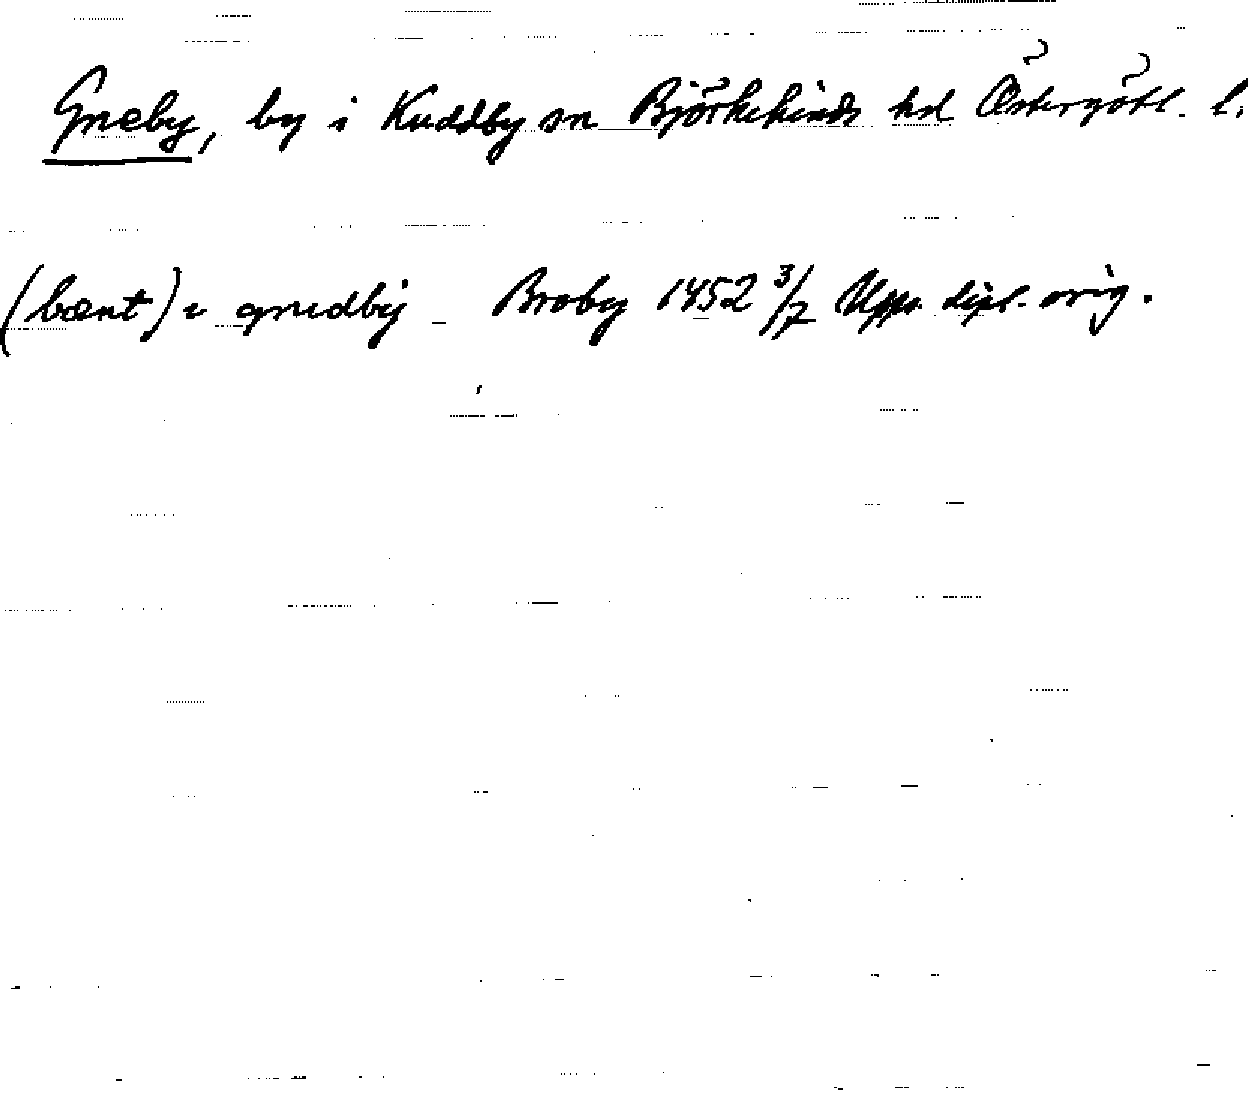 Gneby, by i Kuddby sn Björkekinds hd Östergötl. l.
(bænt) i gnudby _ Broby 1452 3/7 Upps. dipl. orig.